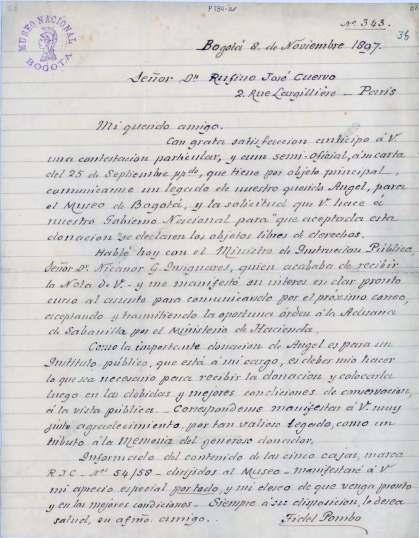 P184-21
Nº 343.
36
MUSEO NACIONAL
BOGOTA
Bogotá 8 de Noviembre 1897.
Señor Dn. Rufino José Cuervo
2. Rue Largillière — París
Mi querido amigo.
Con grata satisfaccion anticipo á V.
una contestacion particular, y aun semi-oficial, á su carta
del 25 de Septiembre ppdo, que tiene por objeto principal,
comunicarme un legado de nuestro querido Angel, para
el Museo de Bogotá, y la solicitud que V. hace á
nuestro Gobierno Nacional para "que aceptada esta
donacion se declaren los objetos libres de derechos.
Hablé hoy con el Ministro de Instruccion Pública,
Señor Dn. Nicanor G. Insignares, quien acababa de recibir
la Nota de V. — y me manifestó su interes en dar pronto
curso al asunto para comunicando por el próximo correo,
aceptando y trasmitiendo la oportuna órden á la Aduana
de Sabanilla por el Ministerio de Hacienda.
Como la importante donacion de Angel es para un
Instituto público, que está á mi cargo, es deber mio hacer
lo que sea necesario para recibir la donacion y colocarla
luego en las debidas y mejores condiciones de conservacion,
á la vista pública — Correspóndeme manifestar á V. muy
justo agradecimiento, por tan valioso legado, como un
tributo á la Memoria del generoso donador.
Informado del contenido de las cinco cajas, marca
R.J.C. — Nos 54/58 — dirijidos al Museo — manifestaré á V.
mi aprecio especial por todo, y mi deseo de que venga pronto
y en las mejores condiciones — Siempre á su disposicion, le desea
salud, su afmo. amigo..
Fidel Pombo